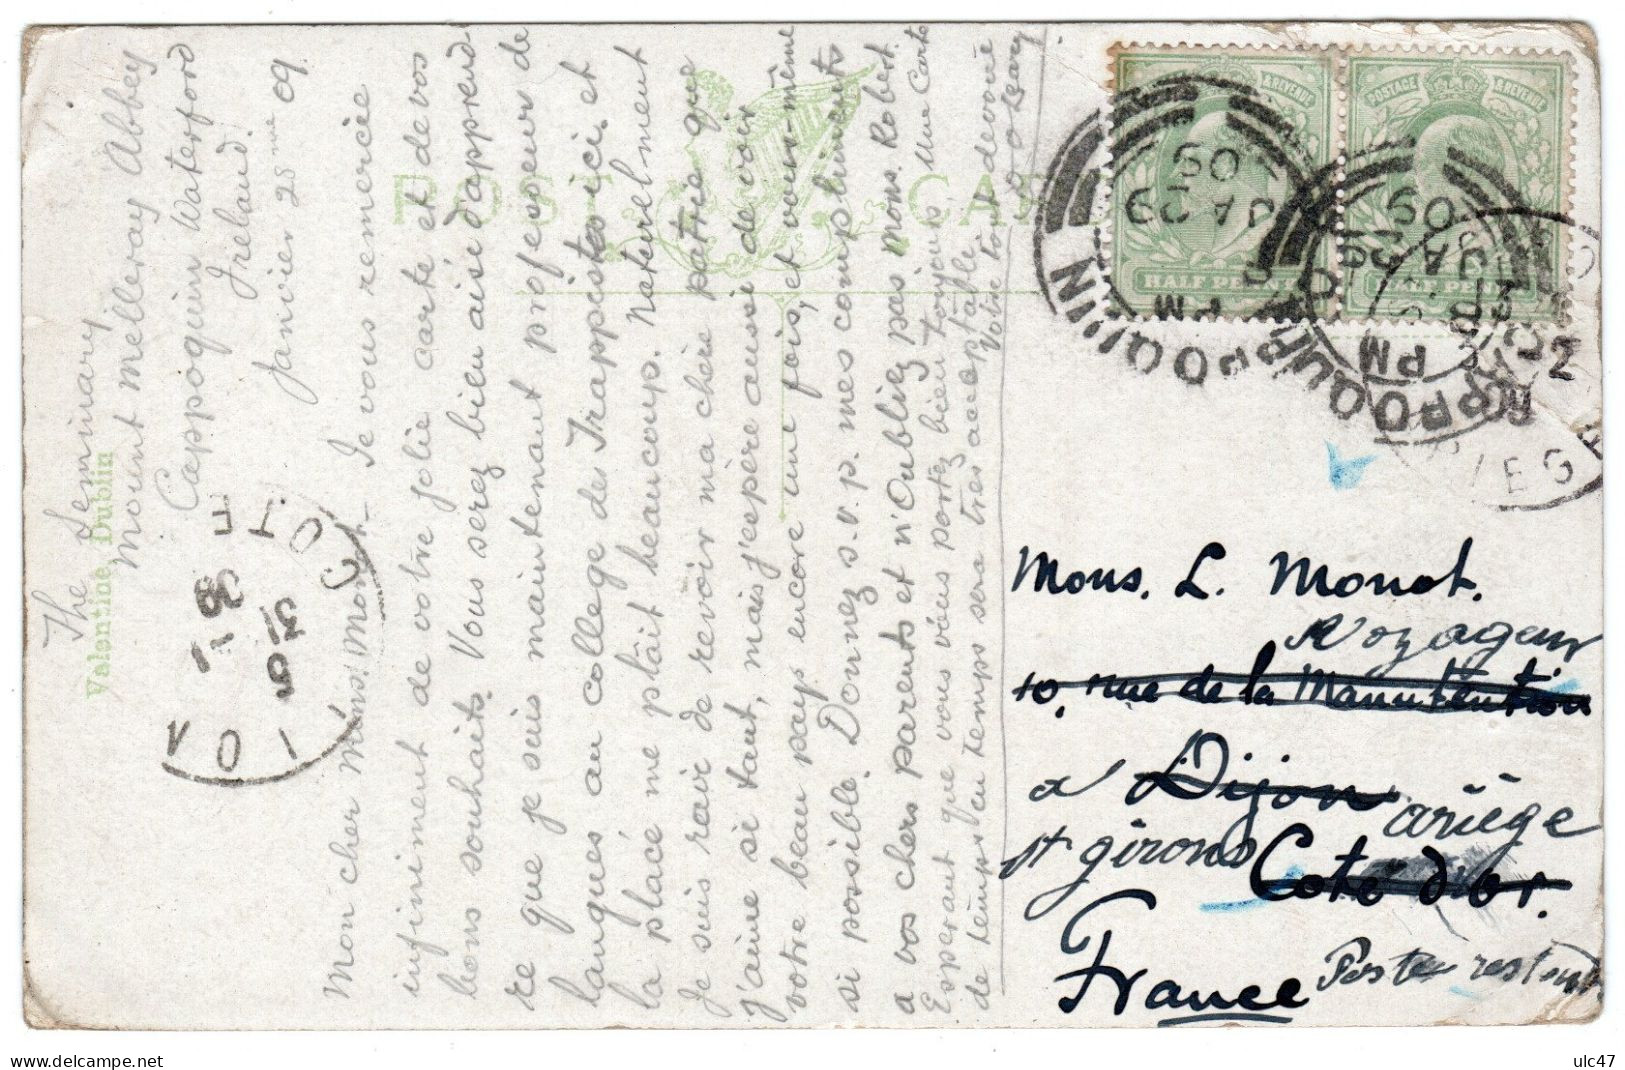 The Seminary
Mount Melleray Abbey
Cappoquin Waterford
Ireland.
Janvier 28me 09.
Mon cher Mons. Monot- Je vous remercie
infiniment de votre jolie carte et de vos
bons souhaits. Vous serez bien aise d'apprend
re que je suis maintenant professeur de
langues au college des Trappistes ici. et
la place me plâit beaucoup. Naturelment
Je suis ravi de revoir ma chère patrie que
j'aime si tant, mais j'espère aussi de voir
votre beau pays encore une fois, et vous-même
si possible. Donnez s.v.p. mes compliments
a vos chers parents et n'oubliez pas Mons. Robert.
Esperant que vous vous portez bien toujours, Une Carte
de temps en temps sera très acceptable.
Votre tout devoué
POST CARD
Valentine, Dublin
POSTAGE & REVENUE
HALF PENNY
POSTAGE & REVENUE
HALF PENNY
CAPPOQUIN
PM
JA 29
09
CAPPOQUIN
PM
JA 29
09
COTE
5
31 - 1
09
Mons. L. Monot.
Voyageur
10, rue de la Manutention
a Dijon ariège
st girons Coté d'or.
France Poste restante
ulc47